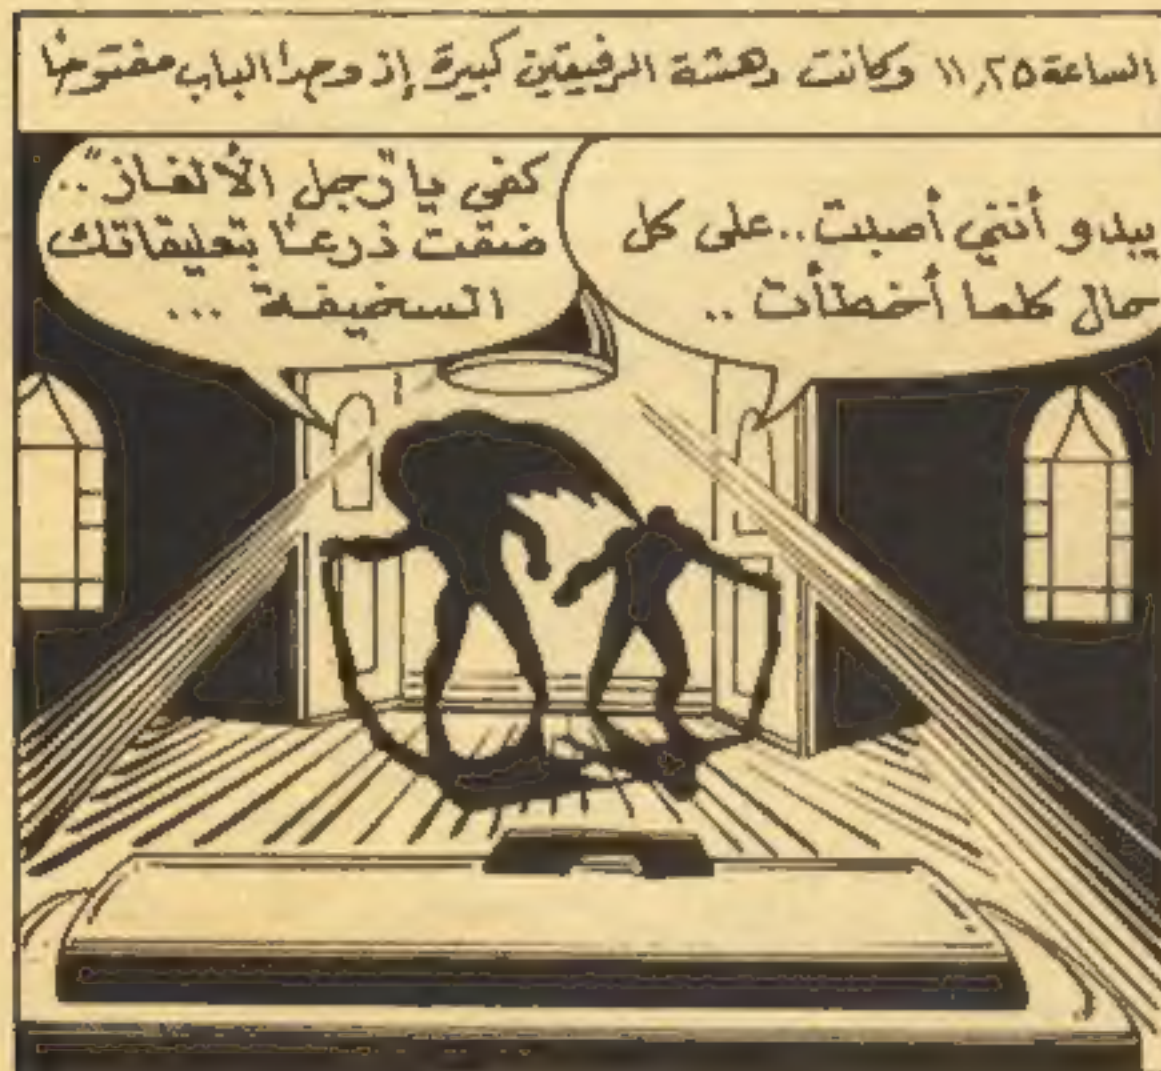 الساعة ١١,٢٥ وكانت دهشة الرفيقين كبيرة إذ وجدا الباب مفتوحًا
يبدو أنني أصبت..على كل
حال كلما أخطأت ..
كفى يا "رجل الألغاز"..
ضقت ذرعـًا بتعليقاتك
السخيفـة ...